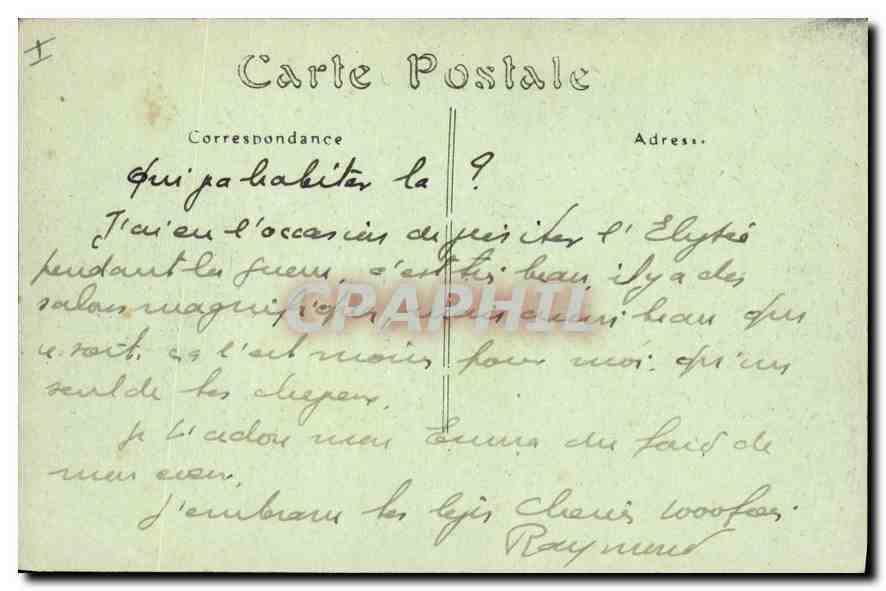 Carte Postale
Correspondance
Adresse
Qui va habiter la ?
J'ai eu l'occasion de visiter l'Elysée
pendant la guerre, c'est très beau, il y a des
salons magnifiques, mais aussi beau que
ce soit, ça l'est moins pour moi qu'un
seul de tes cheveux.
Je t'adore mon Emma du fond de
mon coeur.
J'embrasse tes Chéris 1000 fois
Raymond
CPAPHIL